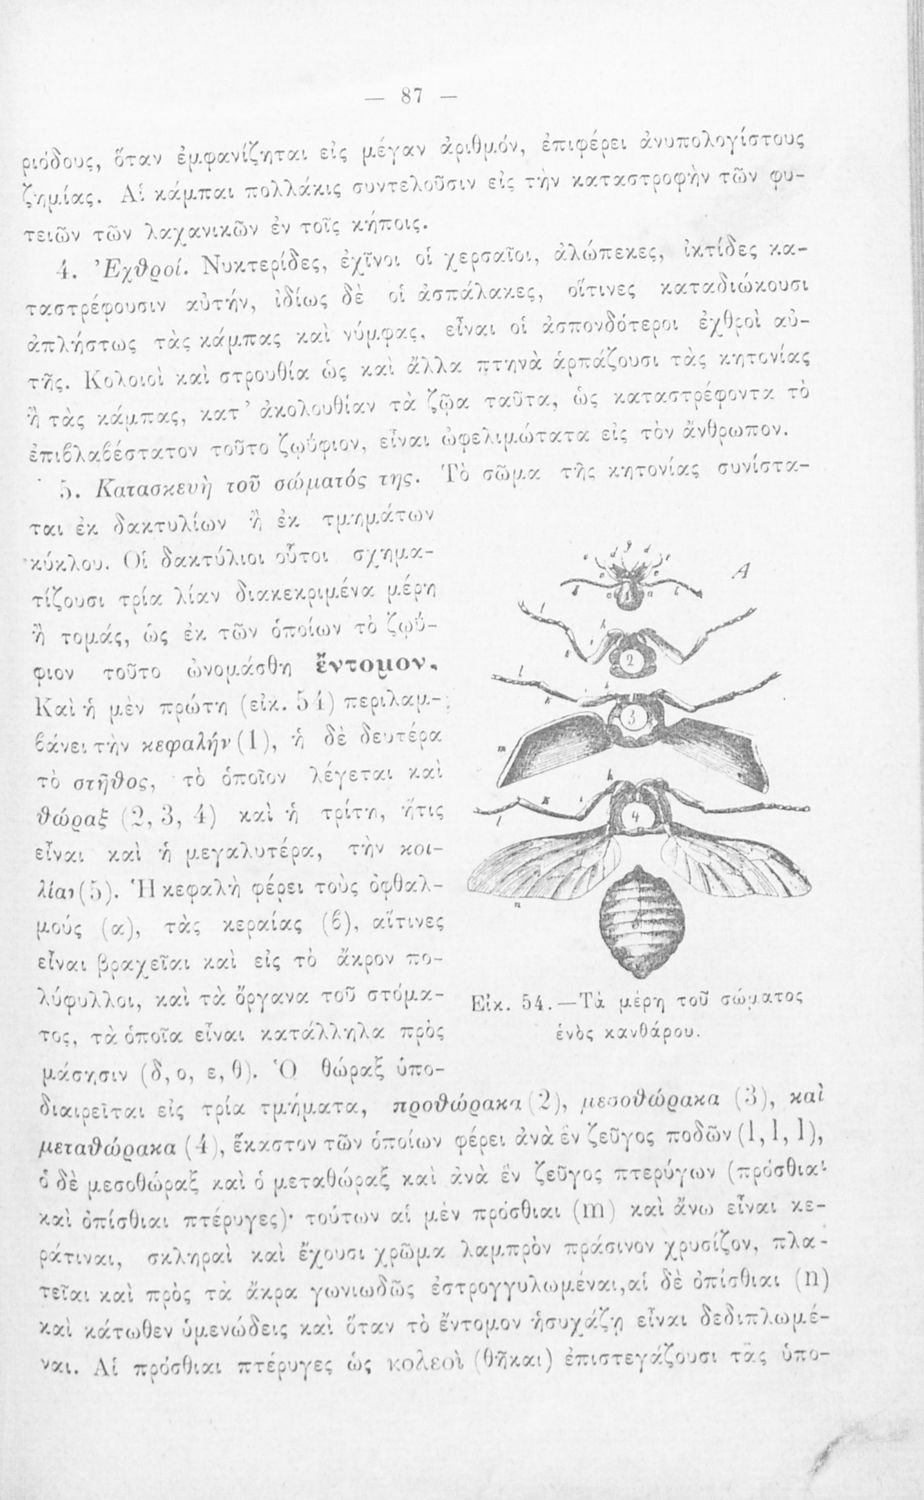 — 87 —
ριόδους, ὅταν ἐμφανίζηται εἰς μέγαν ἀριθμόν, ἐπιφέρει ἀνυπολογίστους
ζημίας. Αἱ κάμπαι πολλάκις συντελοῦσιν εἰς τὴν καταστροφὴν τῶν φυ-
τειῶν τῶν λαχανικῶν ἐν τοῖς κήποις.
4. Ἐχθροί. Νυκτερίδες, ἐχῖνοι οἱ χερσαῖοι, ἀλώπεκες, ἰκτίδες κα-
ταστρέφουσιν αὐτήν, ἰδίως δὲ οἱ ἀσπάλακες, οἵτινες καταδιώκουσι
ἀπλήστως τὰς κάμπας καὶ νύμφας, εἶναι οἱ ἀσπονδότεροι ἐχθροὶ αὐ-
τῆς. Κολοιοὶ καὶ στρουθία ὡς καὶ ἄλλα πτηνὰ ἁρπάζουσι τὰς κητονίας
ἢ τὰς κάμπας, κατ' ἀκολουθίαν τὰ ζῷα ταῦτα, ὡς καταστρέφοντα τὸ
ἐπιβλαβέστατον τοῦτο ζωΰφιον, εἶναι ὠφελιμώτατα εἰς τὸν ἄνθρωπον.
5. Κατασκευὴ τοῦ σώματός της. Τὸ σῶμα τῆς κητονίας συνίστα-
ται ἐκ δακτυλίων ἢ ἐκ τμημάτων
κύκλου. Οἱ δακτύλιοι οὗτοι σχημα-
τίζουσι τρία λίαν διακεκριμένα μέρη
ἢ τομάς, ὡς ἐκ τῶν ὁποίων τὸ ζωΰ-
φιον τοῦτο ὠνομάσθη ἔντομον.
Καὶ ἡ μὲν πρώτη (εἰκ. 54) περιλαμ-
βάνει τὴν κεφαλήν (1), ἡ δὲ δευτέρα
τὸ στῆθος, τὸ ὁποῖον λέγεται καὶ
θώραξ (2, 3, 4) καὶ ἡ τρίτη, ἥτις
εἶναι καὶ ἡ μεγαλυτέρα, τὴν κοι-
λίαν (5). Ἡ κεφαλὴ φέρει τοὺς ὀφθαλ-
μούς (α), τὰς κεραίας (β), αἵτινες
εἶναι βραχεῖαι καὶ εἰς τὸ ἄκρον πο-
λύφυλλοι, καὶ τὰ ὄργανα τοῦ στόμα-
τος, τὰ ὁποῖα εἶναι κατάλληλα πρὸς
μάσησιν (δ, ο, ε, θ). Ὁ θώραξ ὑπο-
A
1
2
3
4
Εἰκ. 54.—Τὰ μέρη τοῦ σώματος
ἑνὸς κανθάρου.
διαιρεῖται εἰς τρία τμήματα, προθώρακα (2), μεσοθώρακα (3), καὶ
μεταθώρακα (4), ἕκαστον τῶν ὁποίων φέρει ἀνὰ ἓν ζεῦγος ποδῶν (l, l, l),
ὁ δὲ μεσοθώραξ καὶ ὁ μεταθώραξ καὶ ἀνὰ ἓν ζεῦγος πτερύγων (πρόσθιαι
καὶ ὀπίσθιαι πτέρυγες)· τούτων αἱ μὲν πρόσθιαι (m) καὶ ἄνω εἶναι κε-
ράτιναι, σκληραὶ καὶ ἔχουσι χρῶμα λαμπρὸν πράσινον χρυσίζον, πλα-
τεῖαι καὶ πρὸς τὰ ἄκρα γωνιωδῶς ἐστρογγυλωμέναι, αἱ δὲ ὀπίσθιαι (n)
καὶ κάτωθεν ὑμενώδεις καὶ ὅταν τὸ ἔντομον ἡσυχάζῃ εἶναι δεδιπλωμέ-
ναι. Αἱ πρόσθιαι πτέρυγες ὡς κολεοὶ (θῆκαι) ἐπιστεγάζουσι τὰς ὑπο-